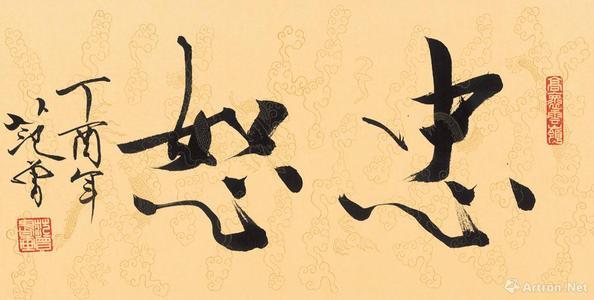 忠恕
丁酉年
范曾
Artron.Net